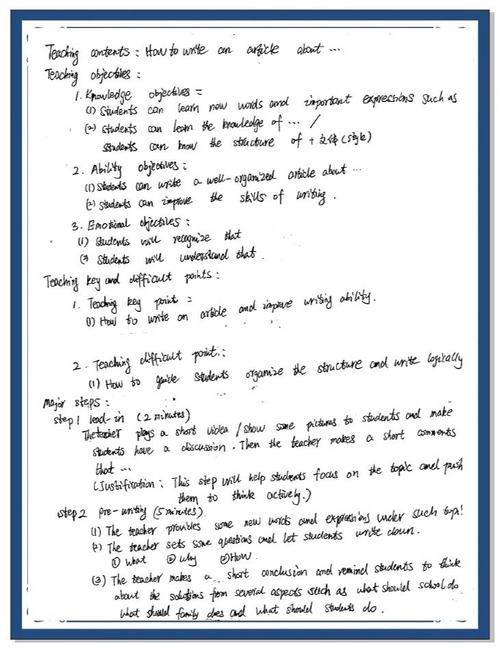 Teaching contents : How to write an article about ...
Teaching objectives :
1. Knowledge objectives :
(1) Students can learn new words and important expressions such as
(2) Students can learn the knowledge of ... /
Students can know the structure of + 文体 (style)
2. Ability objectives :
(1) Students can write a well-organized article about ...
(2) Students can improve the skills of writing.
3. Emotional objectives :
(1) Students will recognize that
(2) Students will understand that
Teaching key and difficult points :
1. Teaching key point :
(1) How to write an article and improve writing ability.
2. Teaching difficult point :
(1) How to guide students organize the structure and write logically
Major steps :
step 1 lead-in (2 minutes)
The teacher plays a short video / show some pictures to students and make
students have a discussion. Then the teacher makes a short comments
that ...
(Justification : This step will help students focus on the topic and push
them to think actively.)
step 2 pre-writing (5 minutes)
(1) The teacher provides some new words and expressions under such topic!
(2) The teacher sets some questions and let students write down.
① what ② why ③ How
(3) The teacher makes a short conclusion and remind students to think
about the solutions from several aspects such as what should school do
what should family does and what should students do.